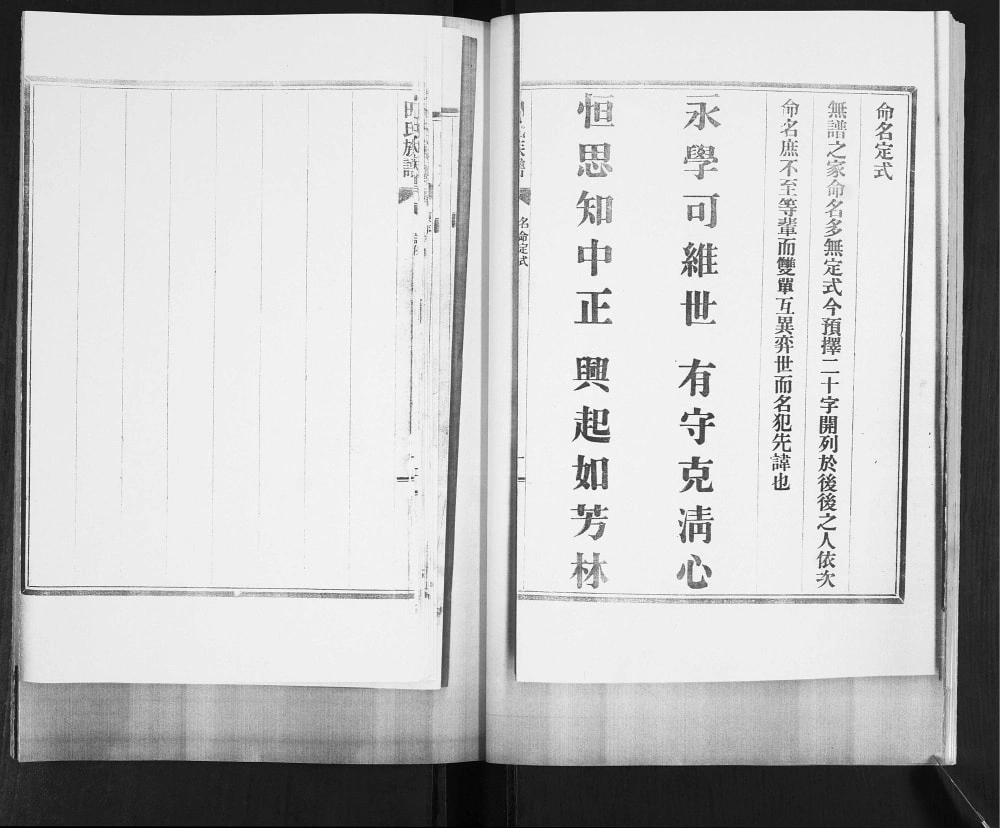 命名定式
無譜之家命名多無定式今預擇二十字開列於後後之人依次
命名庶不至等輩而雙單互異弈世而名犯先諱也
永學可維世 有守克清心
恒思知中正 興起如芳林
名命定式
一
氏族譜